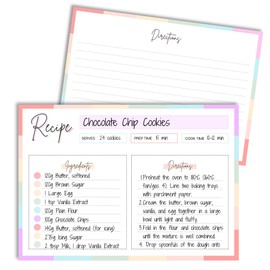 Directions
Recipe
Chocolate Chip Cookies
SERVES: 24 cookies
PREP TIME: 15 min
COOK TIME: 10-12 min
Ingredients
120g Butter, softened
120g Brown Sugar
1 Large Egg
1 tsp Vanilla Extract
Plain Flour
Chocolate Chips
140g Butter, softened (for icing)
Icing Sugar
2 tbsp Milk, 1 drop Vanilla Extract
Directions
1.Preheat the oven to
Line two baking trays
with parchment paper.
2.Cream the butter, brown sugar,
vanilla, and egg together in a large
bowl until light and fluffy.
3.Fold in the flour and chocolate chips
until the mixture is well combined.
4. Drop spoonfuls of the dough onto